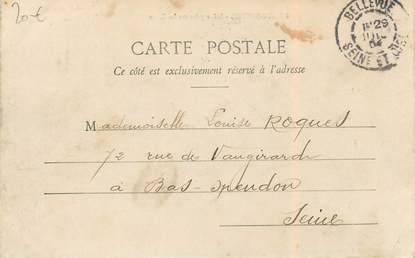 20 €
BELLEVUE
29
SEINE ET OISE
CARTE POSTALE
Ce côté est exclusivement réservé à l'adresse
Mademoiselle Louise Roques
72 rue de Vaugirard
à Bas-Meudon
Seine